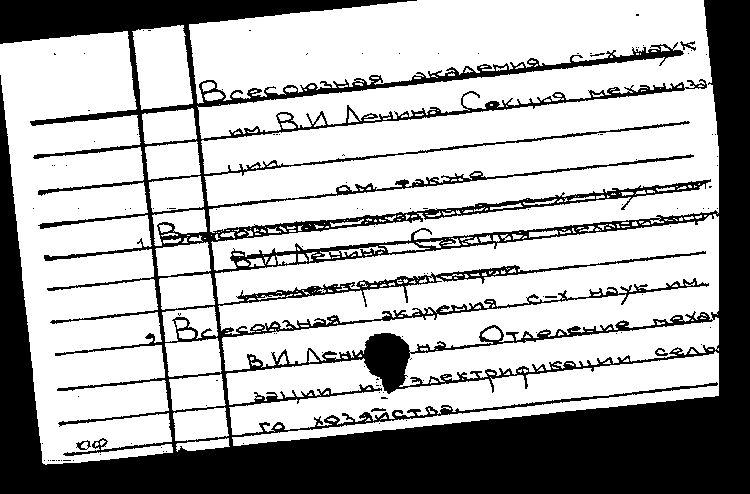 Всесоюзная академия с-х. наук
им. В.И Ленина. Секция механиза-
ции.
см. также
1. Всесоюзная академия с-х. наук им.
В.И. Ленина Секция механизации
и электрификации.
2. Всесоюзная академия с-х наук им.
В.И. Лени на. Отделение механ
зации и электрификации сель
го хозяйства.
юф